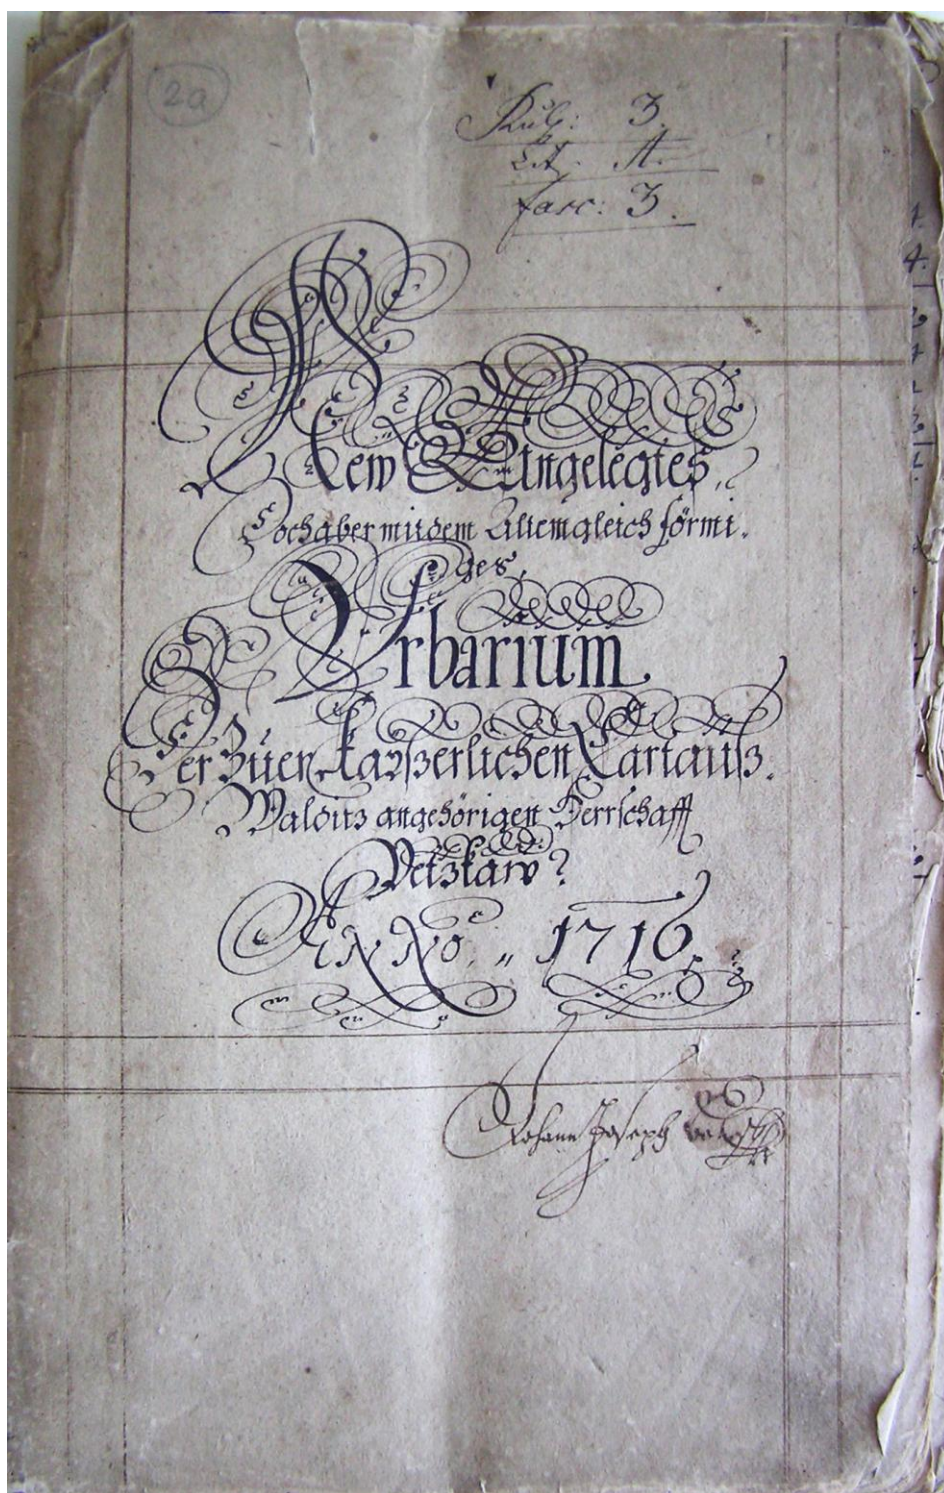 2a
Rub: 3.
Lit. A.
fasc: 3.
New Angelegtes,
Doch aber mit dem Altem gleich förmi.
ges,
Urbarium
Der Zuer Kayßerlichen Cartauß.
Walditz angehörigen Herrschafft
Petzkaw?
ANNO,, 1716.
Johann Joseph